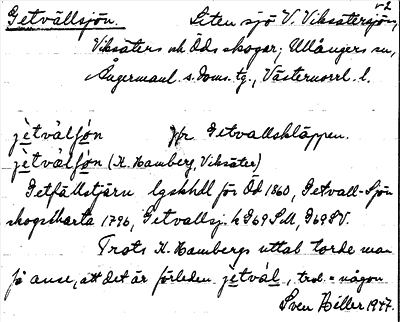 Getvällsjön. Liten sjö V. Viksätersjön,
Viksäters och Öds skogar; Ullångers sn,
Ångermanl. s. Doms. tg., Västernorrl. l.
jètvälfjón Jfr Getvallskläppen.
jètvälfjón (K. Hamberg, Viksäter)
Getfällstjärn lgskhdl för Öd 1860, Getvall-Sjön
skogskarta 1796, Getvallsj. k G69 SV.
Trots K. Hambergs uttal torde man
få anse, att det är förleden jètväl, trol. = någon
Sven Hiller 1947.